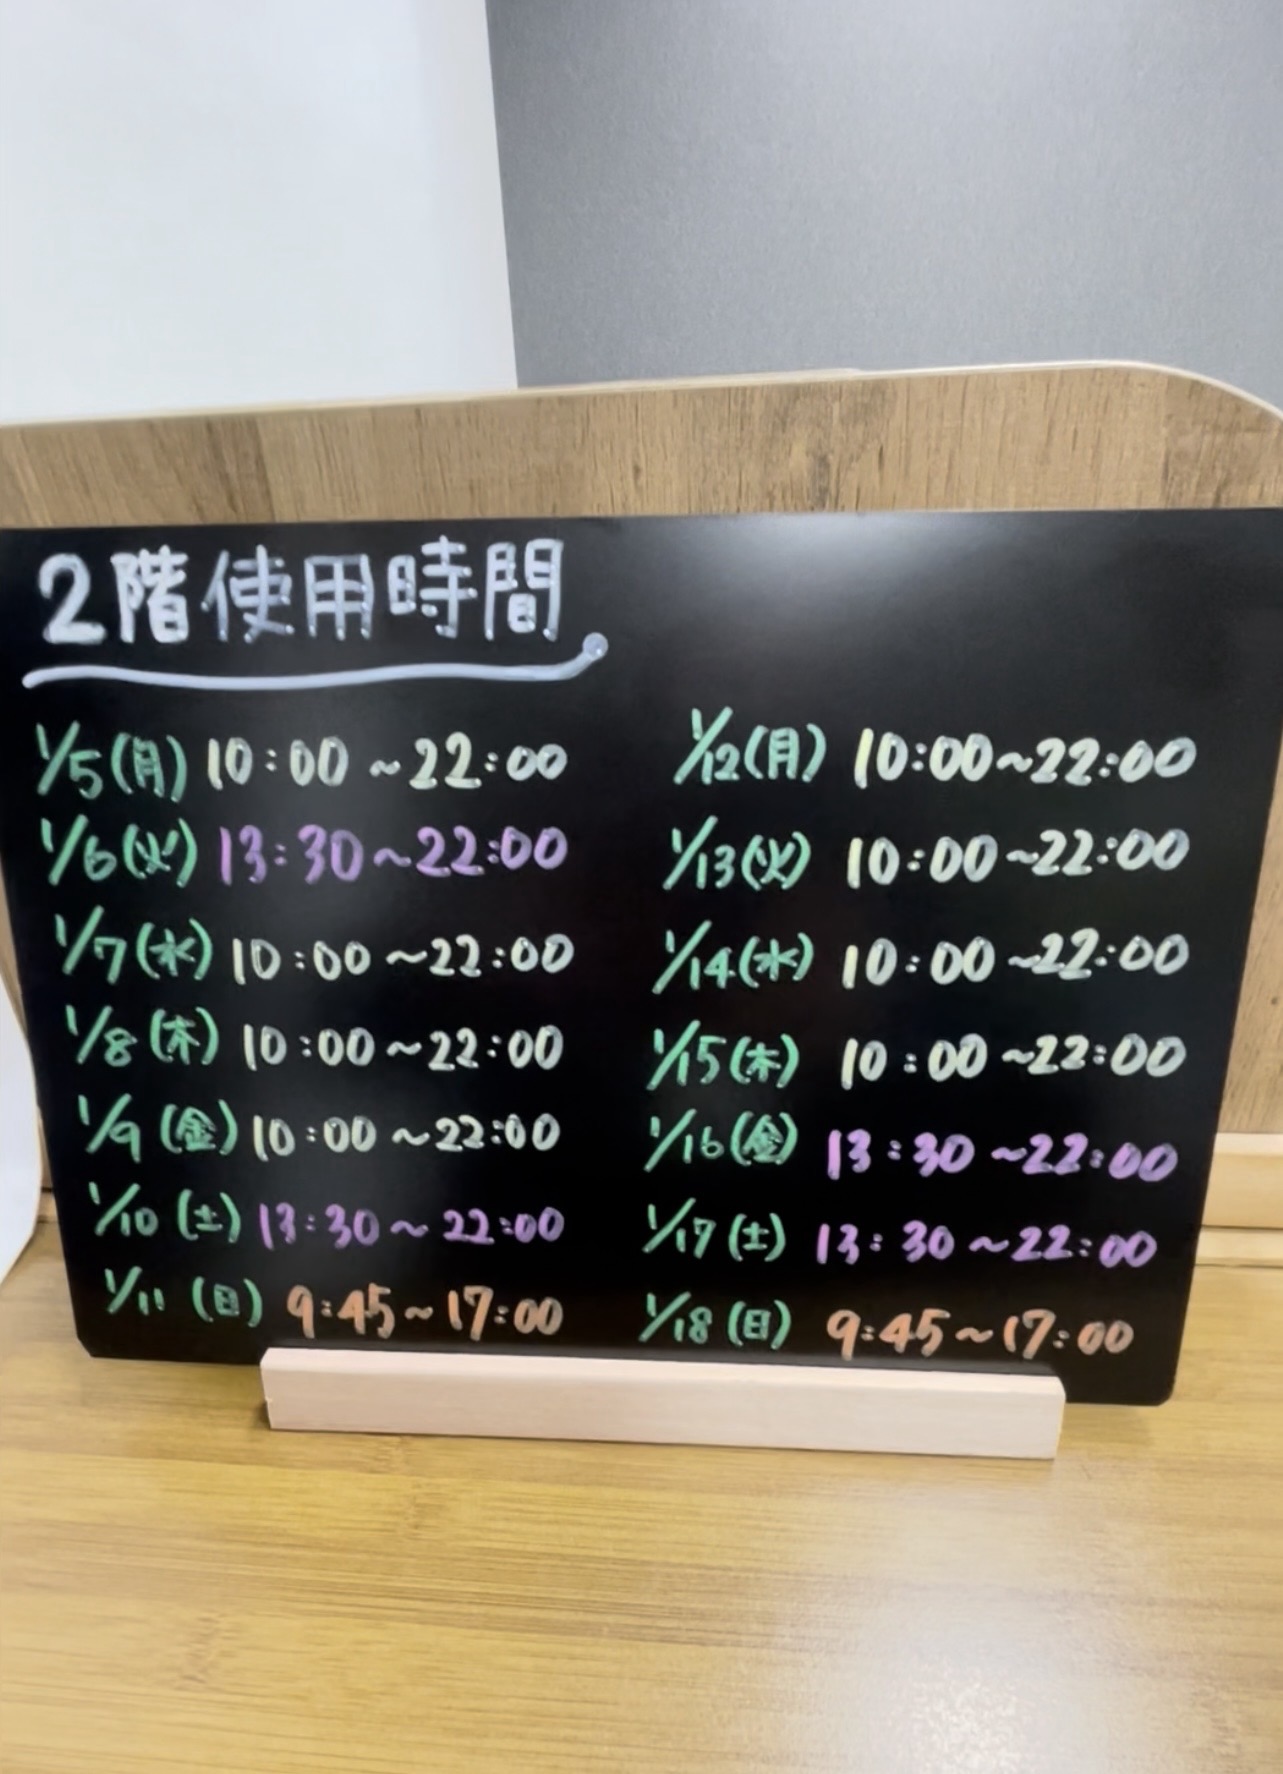 2階使用時間
1/5(月) 10:00~22:00
1/6(火) 13:30~22:00
1/7(水) 10:00~22:00
1/8(木) 10:00~22:00
1/9(金) 10:00~22:00
1/10(土) 13:30~22:00
1/11(日) 9:45~17:00
1/12(月) 10:00~22:00
1/13(火) 10:00~22:00
1/14(水) 10:00~22:00
1/15(木) 10:00~22:00
1/16(金) 13:30~22:00
1/17(土) 13:30~22:00
1/18(日) 9:45~17:00